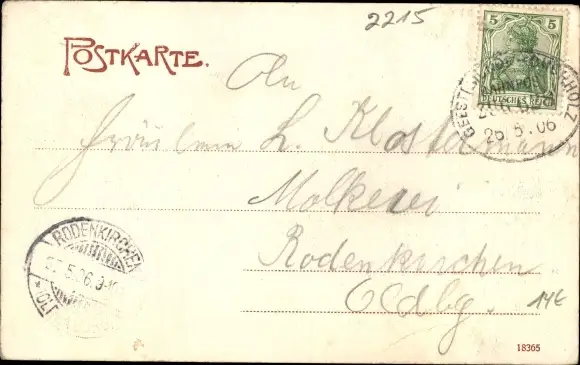 2215
POSTKARTE.
5 5
DEUTSCHES REICH
GEESTEMÜNDE
26.5.06
An
Fräulein L. Klostermann
Molkerei
Rodenkirchen
Oldbg.
RODENKIRCHEN
5.06.
14€
18365